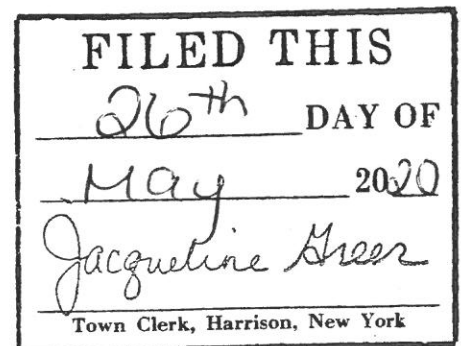 FILED THIS
26th DAY OF
May 2020
Jacqueline Greer
Town Clerk, Harrison, New York